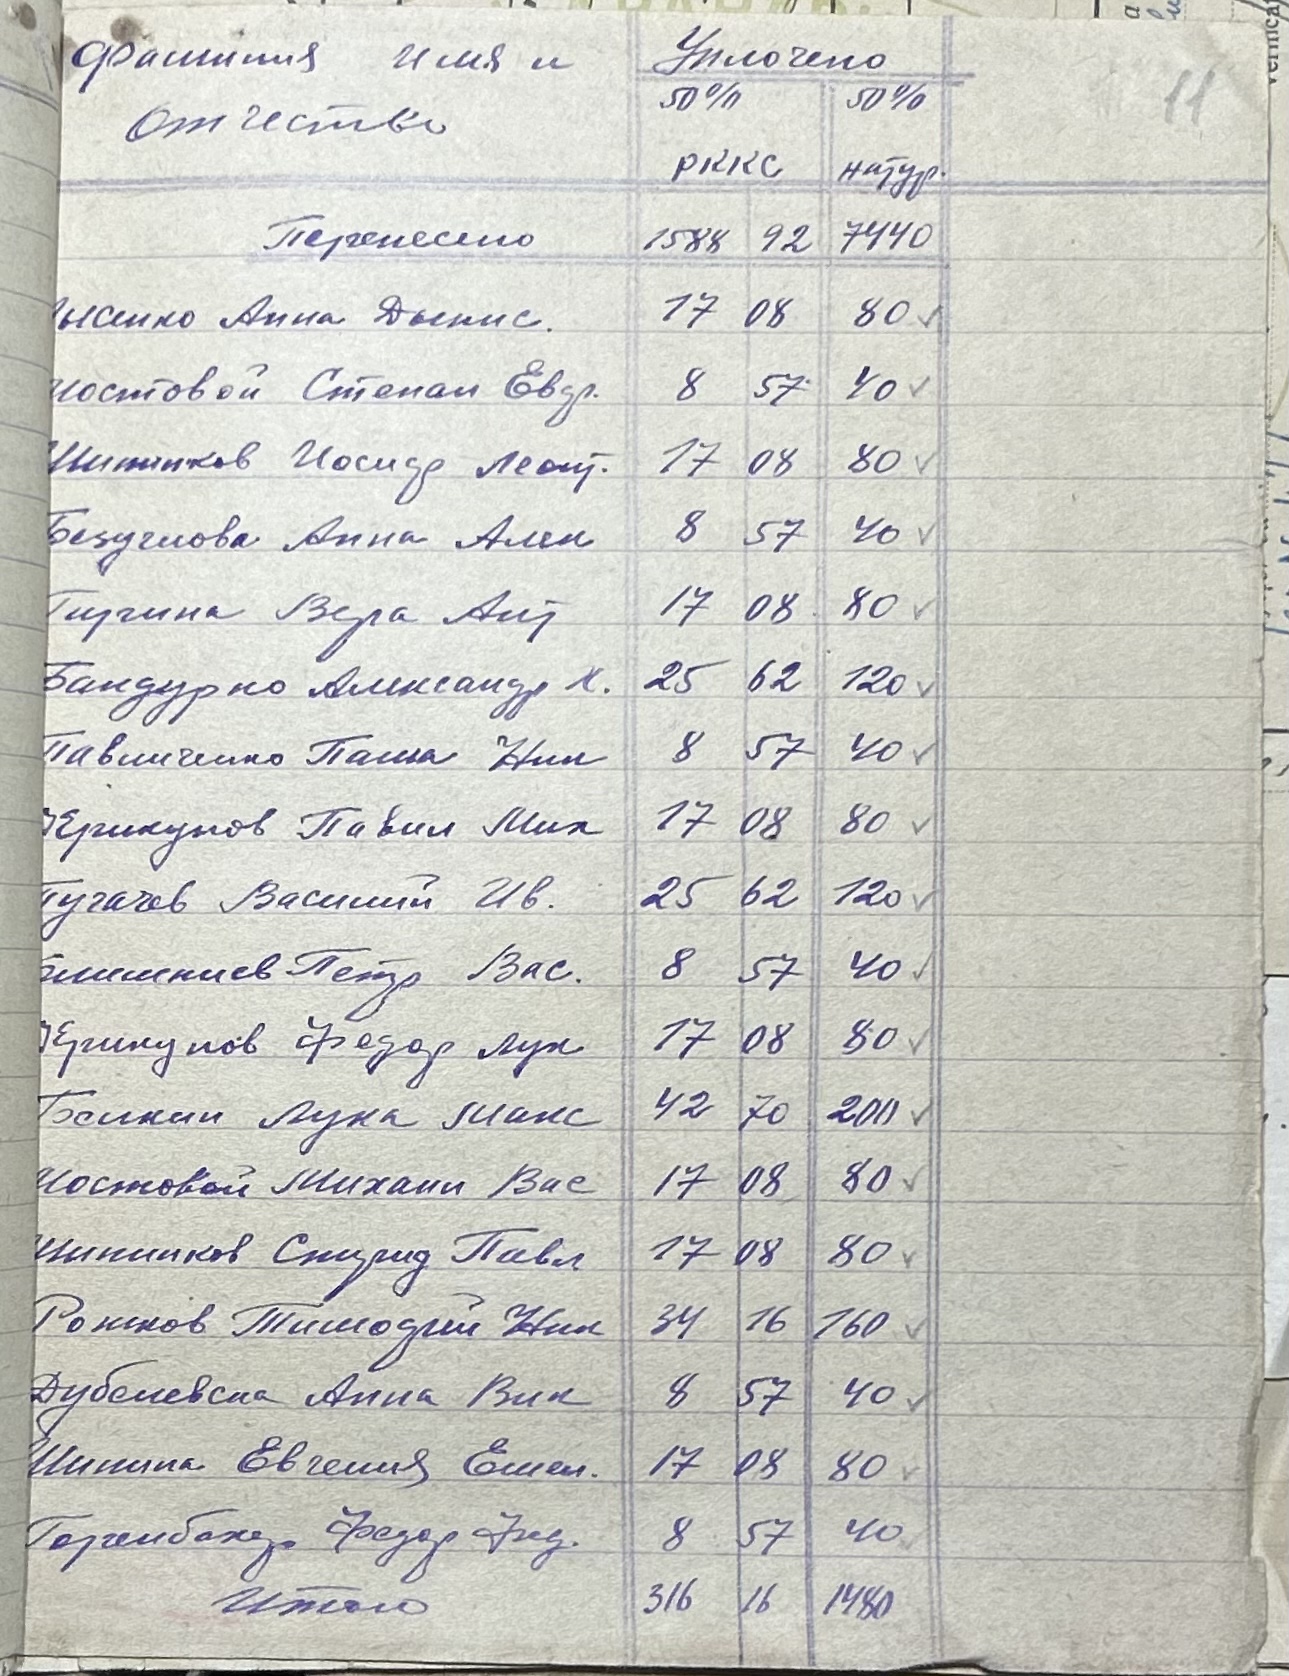 Фамилия Имя и Уплочено
Отчество 50% 50%
РККС натур.
11
Перенесено 1588 92 7440
Лысенко Анна Дынис. 17 08 80 ✓
Мостовой Степан Евдр. 8 57 40 ✓
Шипилов Иосиф Леонт. 17 08 80 ✓
Безуглова Анна Алек 8 57 40 ✓
Вера Ант 17 08 80 ✓
Бандурко Александр Х. 25 62 120 ✓
Павличенко Паша Ник 8 57 40 ✓
Павел Мих 17 08 80 ✓
Пугачев Василий Ив. 25 62 120 ✓
Петр Вас. 8 57 40 ✓
Федор Лук 17 08 80 ✓
Белкин Лука Макс 42 70 200 ✓
Мостовой Михаил Вас 17 08 80 ✓
Шипилов Спирид Павл 17 08 80 ✓
Рожков Тимофей Ник 34 16 160 ✓
Дубелевска Анна Вик 8 57 40 ✓
Шипила Евгения Емел. 17 08 80 ✓
Федор 8 57 40
Итого 316 16 1480